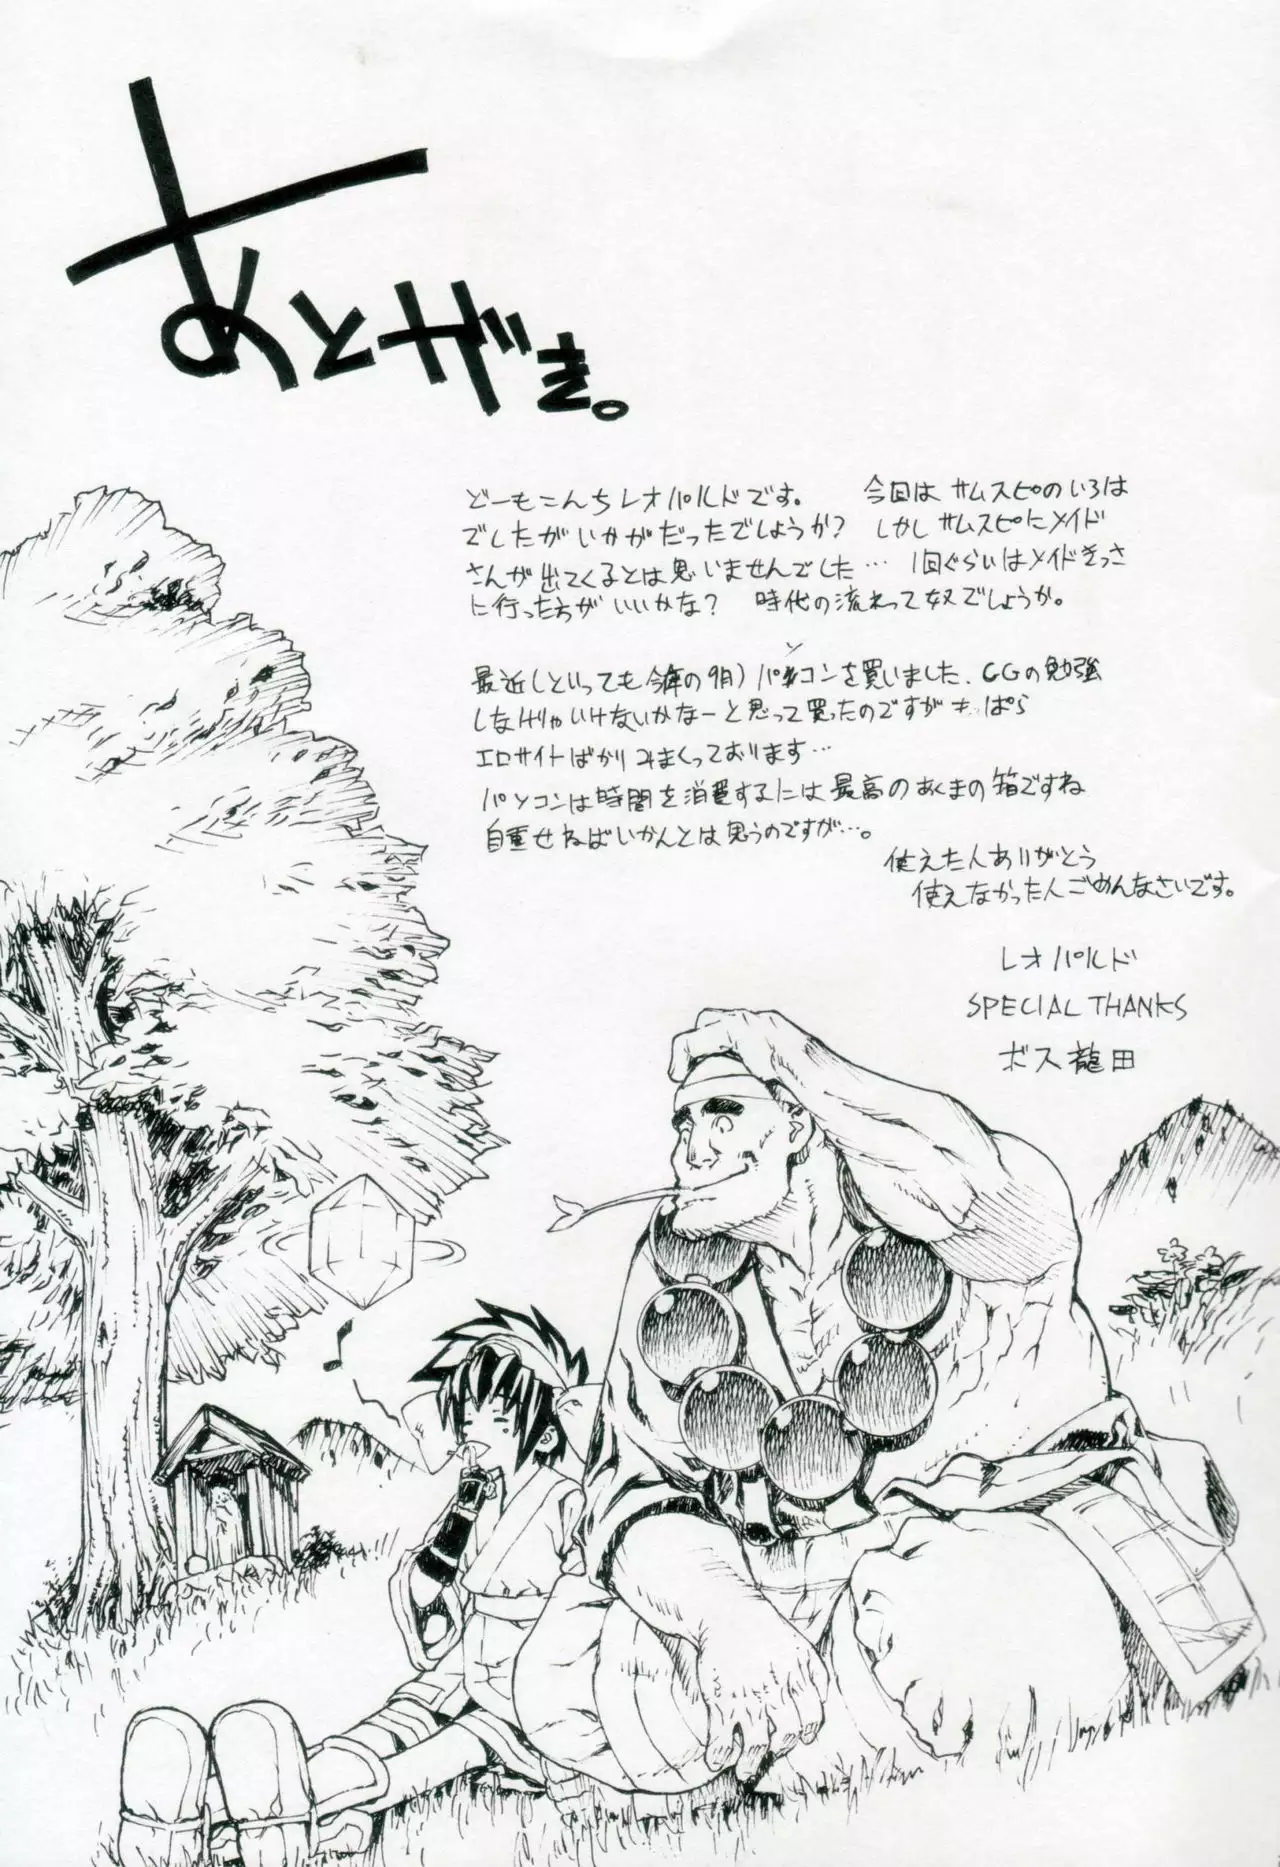 あとがき。
どーもこんちレオパルドです。　今回は サムスピのいろは
でしたがいかがだったでしょうか? しかし サムスピにメイド
さんが出てくるとは思いませんでした… 1回ぐらいはメイドきっさ
に行った方がいいかな? 時代の流れって奴でしょうか。
最近(といっても今年の9月)パソコンを買いました、CGの勉強
しなけりゃいけないかなーと思って買ったのですがもっぱら
エロサイトばかりみまくっております…
パソコンは時間を消費するには最高のあくまの箱ですね
自重せねばいかんとは思うのですが…。
使えた人ありがとう
使えなかった人ごめんなさいです。
レオパルド
SPECIAL THANKS
ボス龍田